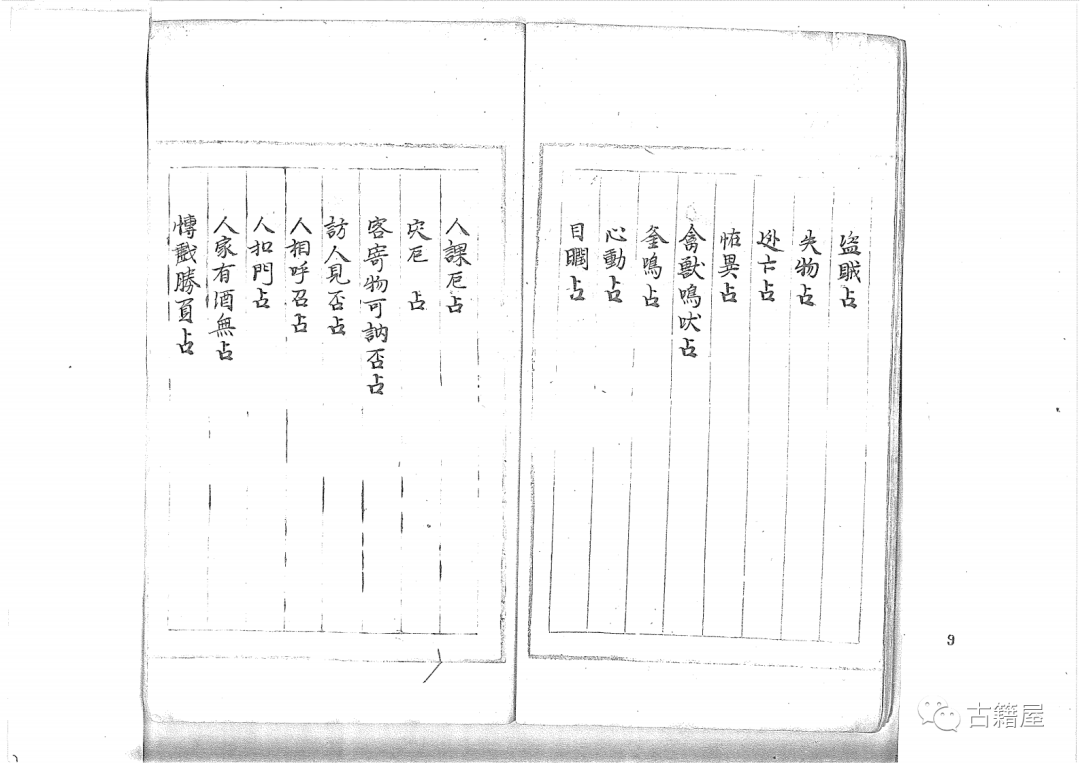 盜賊占
失物占
逃亡占
恠異占
禽獸鳴吠占
釜鳴占
心動占
目瞤占
人謀厄占
灾厄占
客寄物可訥否占
訪人見否占
人相呼召占
人扣門占
人家有酒無占
博戲勝負占
9
古籍屋